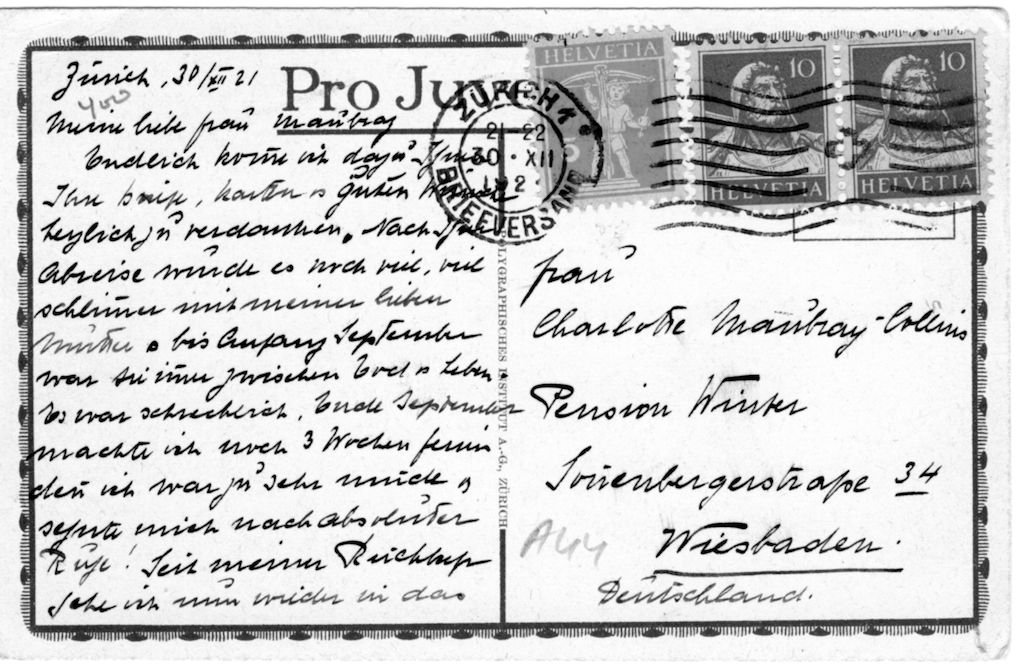 Zürich, 30/XII 21
Pro Juven
400
Meine liebe Frau Maubray
Endlich komme ich dazu Ihnen
Ihre Briefe, Karten & guten
herzlich zu verdanken. Nach Ihrer
Abreise wurde es noch viel, viel
schlimmer mit meiner lieben
Mutter & bis Anfang September
war sie immer zwischen Tod & Leben
Es war schrecklich. Ende September
machte ich noch 3 Wochen Ferien
denn ich war zu sehr müde &
sehnte mich nach absoluter
Ruhe! Seit meiner
gehe ich nun wieder in das
HELVETIA
10
HELVETIA
10
HELVETIA
ZÜRICH 1
21-22
30.XII
BRIEFVERSAND
POLYGRAPHISCHES INSTITUT A.-G., ZÜRICH
Frau
Charlotte Maubray-Collins
Pension Winter
Sonnenbergerstraße 34
Wiesbaden.
Deutschland.
A44